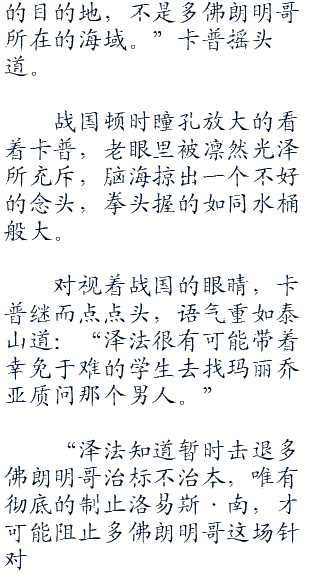 的目的地，不是多佛朗明哥
所在的海域。”卡普摇头
道。
战国顿时瞳孔放大的看
着卡普，老眼里被凛然光泽
所充斥，脑海掠出一个不好
的念头，拳头握的如同水桶
般大。
对视着战国的眼睛，卡
普继而点点头，语气重如泰
山道：“泽法很有可能带着
幸免于难的学生去找玛丽乔
亚质问那个男人。”
“泽法知道暂时击退多
佛朗明哥治标不治本，唯有
彻底的制止洛易斯·南，才
可能阻止多佛朗明哥这场针
对